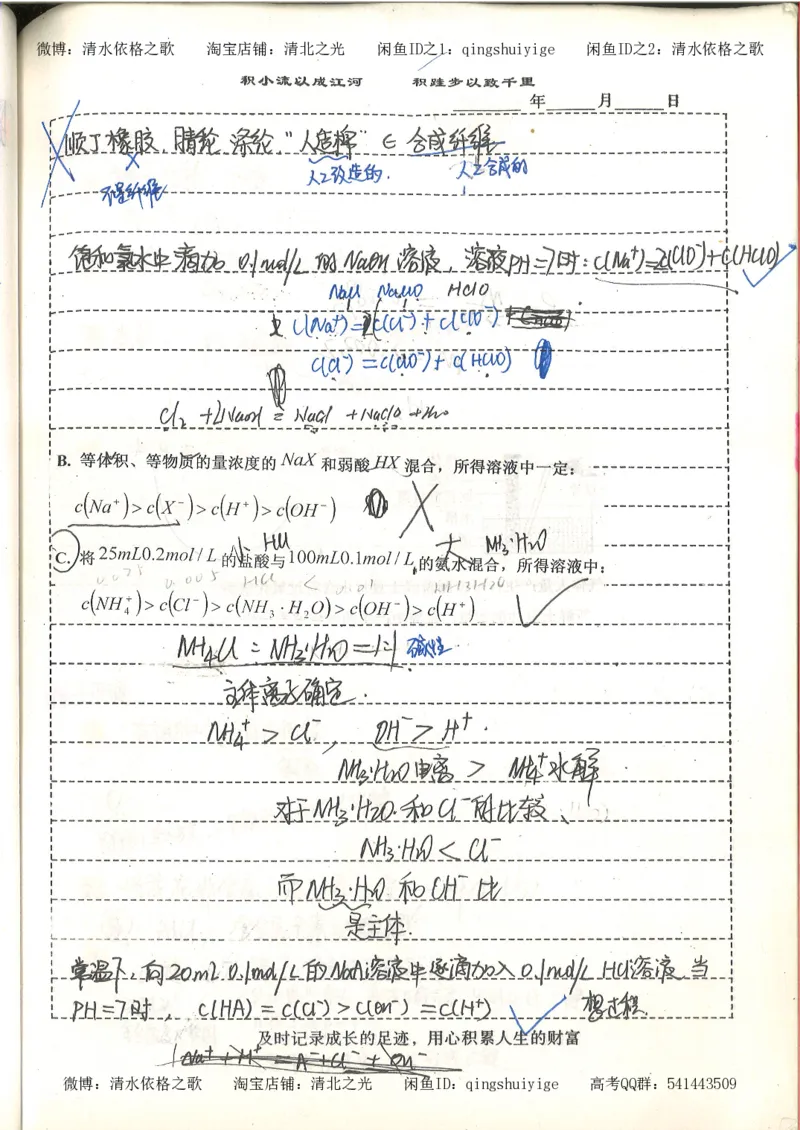 微博：清水依格之歌 淘宝店铺：清北之光 闲鱼ID之1：qingshuiyige 闲鱼ID之2：清水依格之歌
积小流以成江河 积跬步以致千里
年 月 日
顺丁橡胶、腈纶、涤纶、"人造棉" ∈ 合成纤维
不是纤维 人工改造的. 人工合成的
饱和氯水中滴加 0.1mol/L 的 NaOH 溶液，溶液PH=7时：c(Na⁺)=2c(ClO⁻)+c(HClO)
NaCl NaClO HClO
c(Na⁺)=c(Cl⁻)+c(ClO⁻)
c(Cl⁻)=c(ClO⁻)+c(HClO)
Cl₂ +2NaOH = NaCl +NaClO +H₂O
B. 等体积、等物质的量浓度的 NaX 和弱酸 HX 混合，所得溶液中一定：
c(Na⁺)>c(X⁻)>c(H⁺)>c(OH⁻)
小 HCl 大 NH₃·H₂O
C. 将 25mL0.2mol/L 的盐酸与 100mL0.1mol/L 的氨水混合，所得溶液中：
0.005 HCl < 0.01 NH3H2O
c(NH₄⁺)>c(Cl⁻)>c(NH₃·H₂O)>c(OH⁻)>c(H⁺)
NH₄Cl : NH₃·H₂O = 1:1 碱性
主体离子确定.
NH₄⁺ > Cl⁻, OH⁻ > H⁺.
NH₃·H₂O电离 > NH₄⁺水解.
对于NH₃·H₂O 和 Cl⁻ 时比较、
NH₃·H₂O < Cl⁻
而 NH₃·H₂O 和 OH⁻ 比
是主体.
常温下，向20mL 0.1mol/L的NaA溶液中逐滴加入 0.1mol/L HCl溶液 当
PH=7时， c(HA)=c(Cl⁻)>c(OH⁻)=c(H⁺) 想过程.
及时记录成长的足迹，用心积累人生的财富
Na⁺ + H⁺ = A⁻+Cl⁻+OH⁻
微博：清水依格之歌 淘宝店铺：清北之光 闲鱼ID：qingshuiyige 高考QQ群：541443509